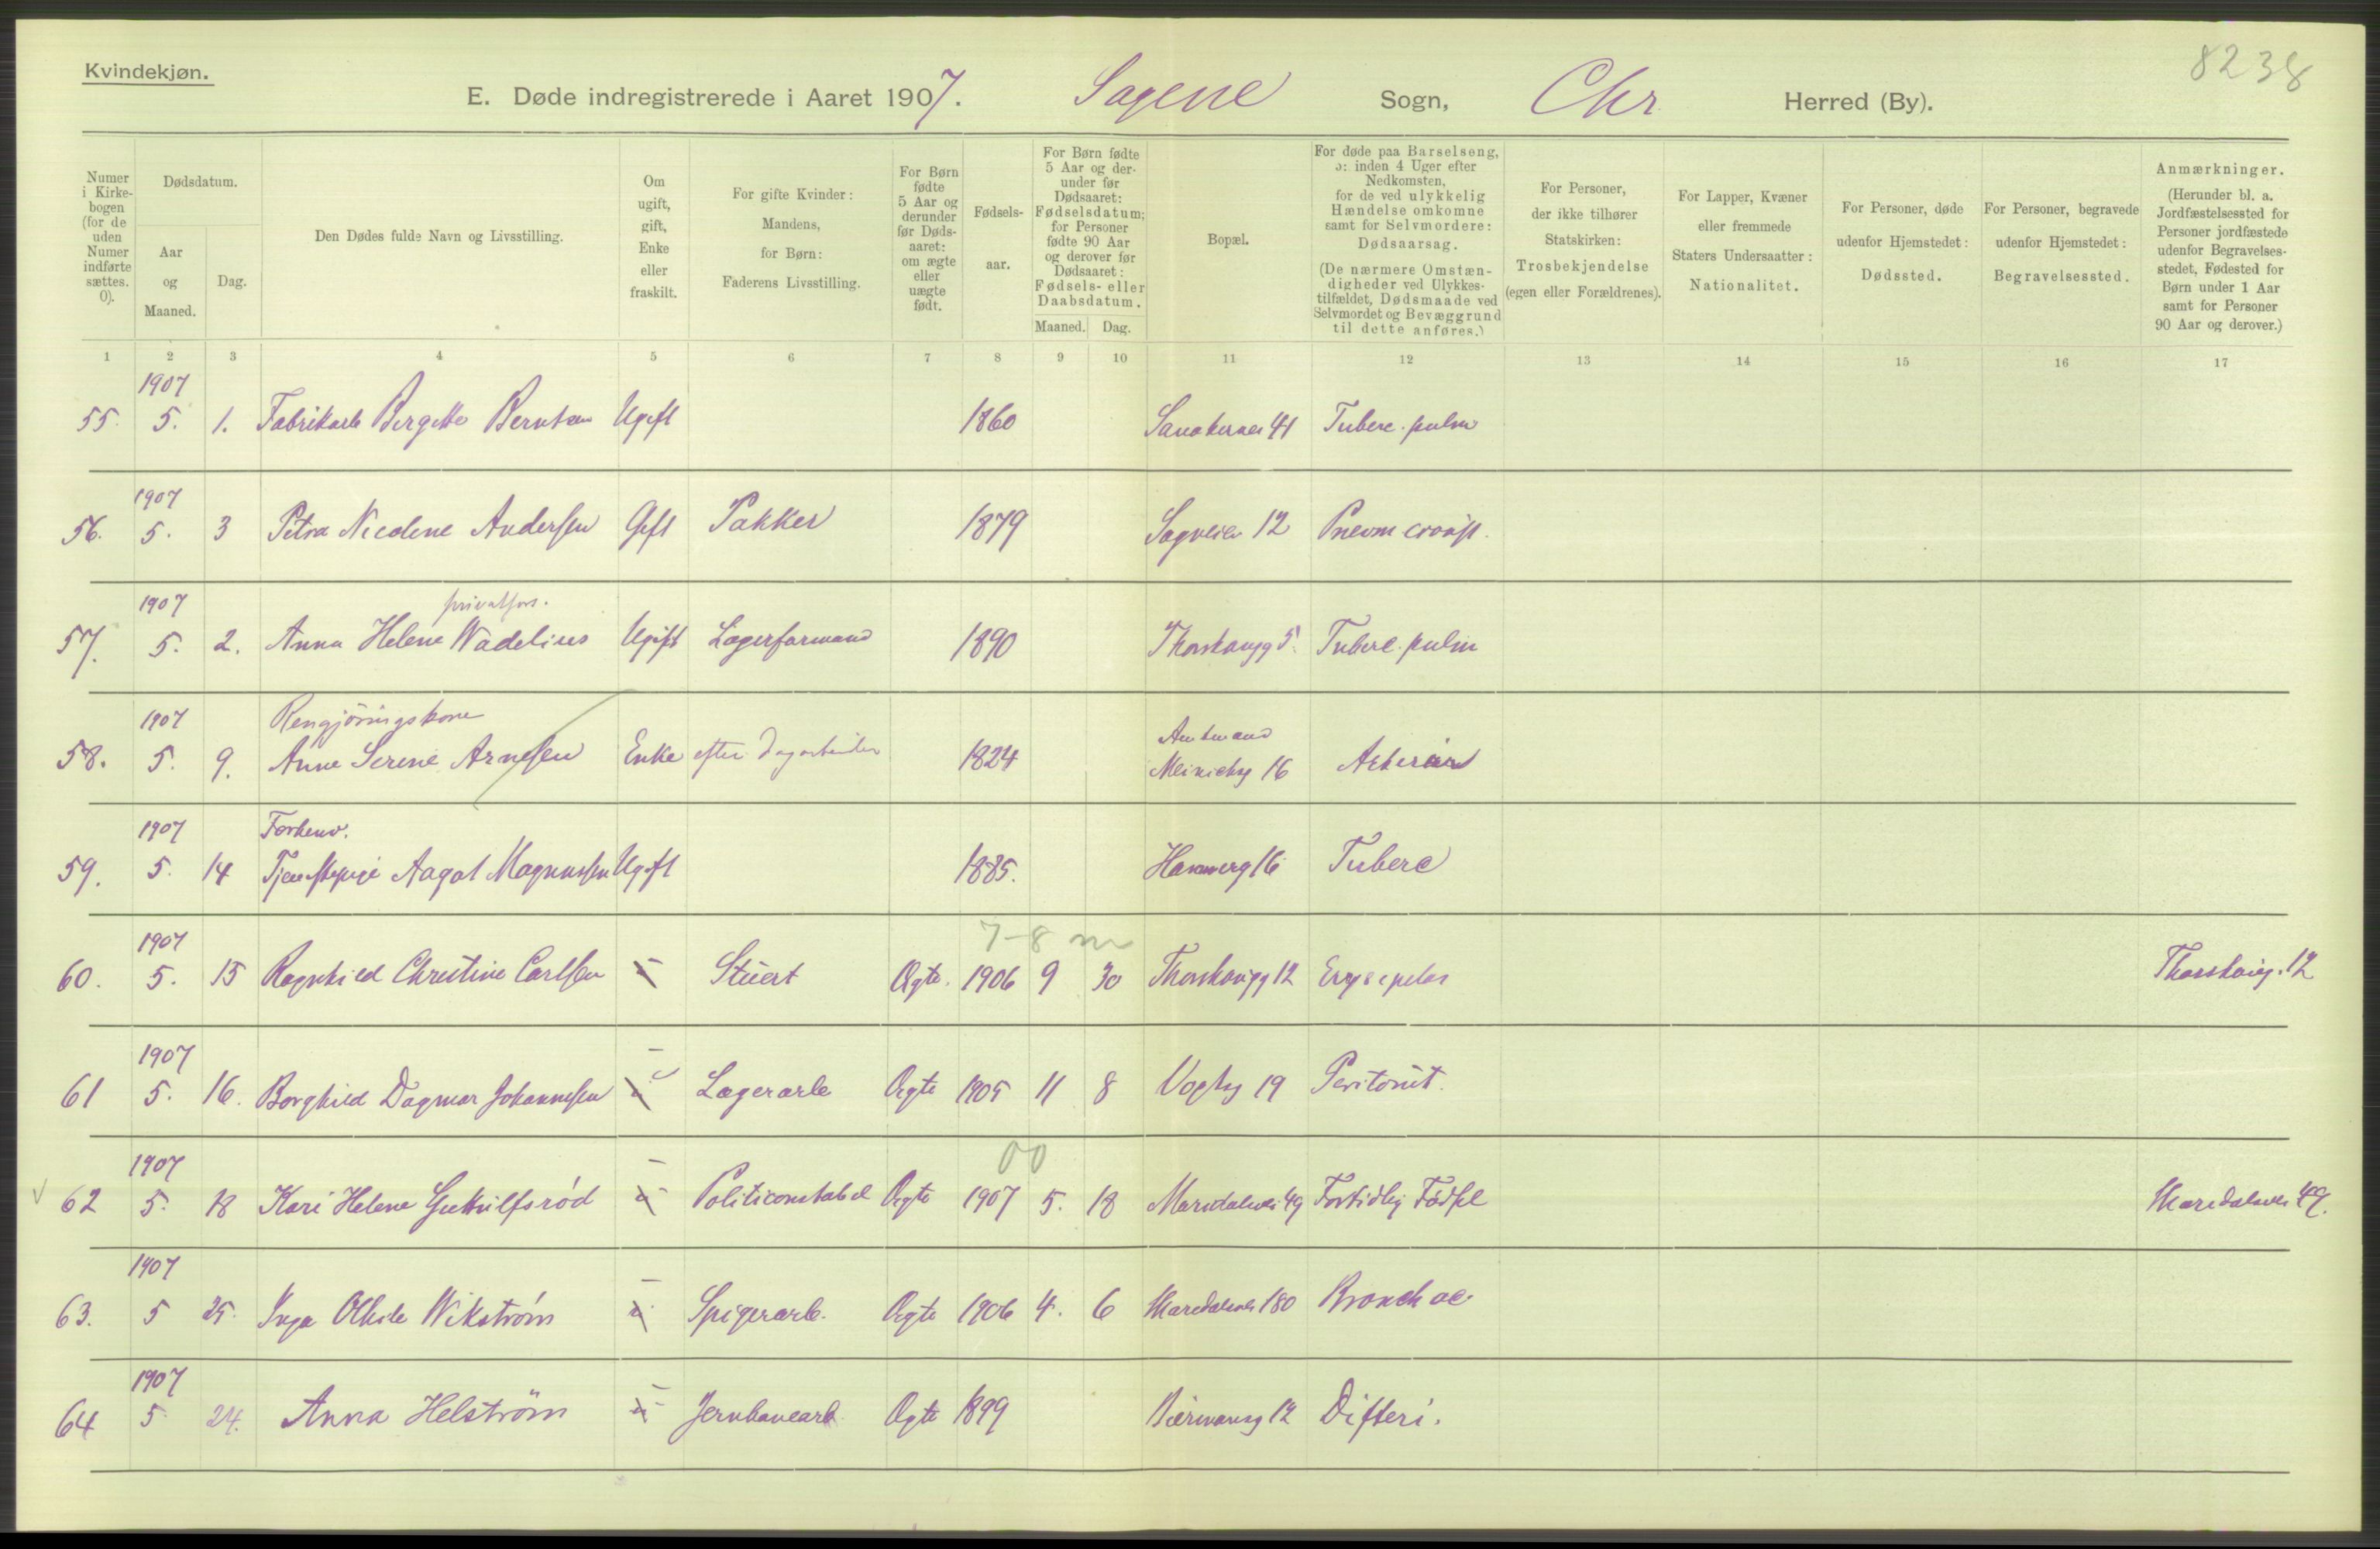 8238
Kvindekjøn.
E. Døde indregistrerede i Aaret 1907. Sagene Sogn, Chr Herred (By).
Numer i Kirke-bogen (for de uden Numer indførte sættes. 0).
Dødsdatum.
Aar og Maaned.
Dag.
Den Dødes fulde Navn og Livsstilling.
Om ugift, gift, Enke eller fraskilt.
For gifte Kvinder: Mandens, for Børn: Faderens Livsstilling.
For Børn fødte 5 Aar og derunder før Døds-aaret: om ægte eller uægte født.
Fødsels-aar.
For Børn fødte 5 Aar og der-under før Dødsaaret: Fødselsdatum; for Personer fødte 90 Aar og derover før Dødsaaret: Fødsels- eller Daabsdatum.
Maaned. Dag.
Bopæl.
For døde paa Barselseng, ɔ: inden 4 Uger efter Nedkomsten, for de ved ulykkelig Hændelse omkomne samt for Selvmordere: Dødsaarsag.
(De nærmere Omstæn-digheder ved Ulykkes-tilfældet, Dødsmaade ved Selvmordet og Bevæggrund til dette anføres.)
For Personer, der ikke tilhører Statskirken: Trosbekjendelse (egen eller Forældrenes).
For Lapper, Kvæner eller fremmede Staters Undersaatter: Nationalitet.
For Personer, døde udenfor Hjemstedet: Dødssted.
For Personer, begravede udenfor Hjemstedet: Begravelsessted.
Anmærkninger.
(Herunder bl. a. Jordfæstelsessted for Personer jordfæstede udenfor Begravelses-stedet, Fødested for Børn under 1 Aar samt for Personer 90 Aar og derover.)
1 2 3 4 5 6 7 8 9 10 11 12 13 14 15 16 17
1907
55. 5. 1. Fabrikarb Bergitte Berntsen Ugift 1860 Sanakerveien 41 Tuberc. pulm
1907
56. 5. 3 Petra Nicoline Andersen Gift Pakker 1879 Sagveien 12 Pneum croup.
1907 privatfors.
57. 5. 2. Anna Helene Wadelius Ugift Lagerformand 1890 Thorshaugg 5. Tuberc. pulm
1907 Rengjöringskone Amtmand
58. 5. 9. Anne Serine Arnesen Enke efter Dagarbeider 1824 Meinichsg 16
1907 Forhenv.
59. 5. 14 Tjenestepige Aagot Magnussen Ugift 1885. Hammerg 16 Tuberc
1907 7-8 m
60. 5. 15 Ragnhild Christine Carlsen Stuert Ægte. 1906 9 30 Thorshaugg 12 Erysipelas Thorshaug. 12
1907
61 5. 16. Borghild Dagmar Johannesen Lagerarb Ægte 1905 11 8 Vogtsg 19 Peritonit.
1907 00
62 5. 18 Kari Helene Politiconstabel Ægte 1907 5. 18 Maridalsvei 49 Fortidlig Födsel Maridalsvei 49.
1907
63. 5 25. Inga Othile Wikström Spigerarb. Ægte 1906 4. 6 Maridalsvei 180 Bronch ac.
1907
64 5 24. Anna Helström Jernbanearb Ægte 1899 Biermansg 12 Difteri.